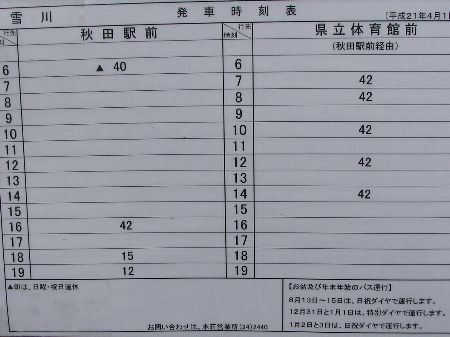 雪川 発車時刻表 (平成21年4月1
行先 秋田駅前 行先 時刻 県立体育館前
時刻 (秋田駅前経由)
6 ▲ 40 6
7 7 42
8 8 42
9 9
10 10 42
11 11
12 12 42
13 13
14 14 42
15 15
16 42 16
17 17
18 15 18
19 12 19
▲印は、日曜・祝日運休 【お盆及び年末年始のバス運行】
8月13日～15日は、日祝ダイヤで運行します。
12月31日と1月1日は、特別ダイヤで運行します。
お問い合わせは、本荘営業所(24)2440 1月2日と3日は、日祝ダイヤで運行します。